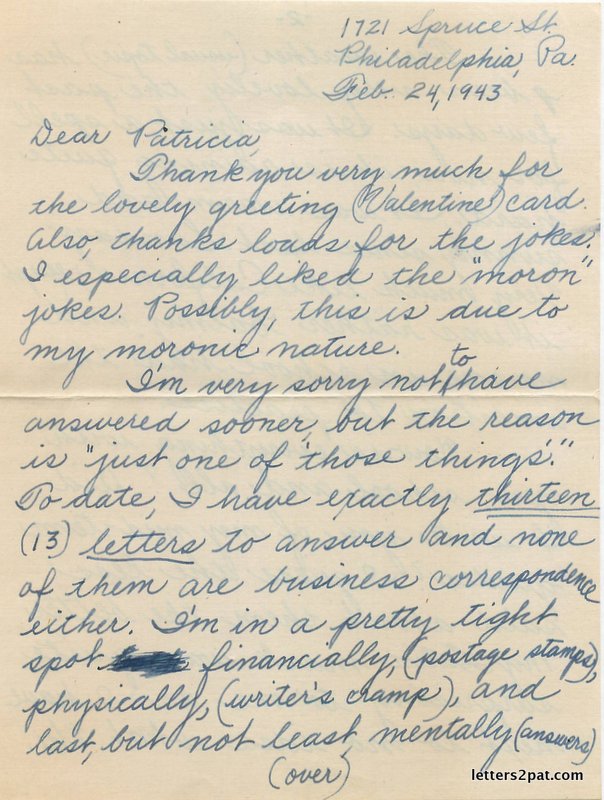 1721 Spruce St.
Philadelphia, Pa.
Feb. 24, 1943
Dear Patricia,
Thank you very much for
the lovely greeting (Valentine) card.
Also, thanks loads for the jokes.
I especially liked the "moron"
jokes. Possibly, this is due to
my moronic nature.
I'm very sorry not to have
answered sooner, but the reason
is "just one of 'those things'."
To date, I have exactly thirteen
(13) letters to answer and none
of them are business correspondence
either. I'm in a pretty tight
spot financially, (postage stamps),
physically, (writer's cramp), and
last, but not least, mentally (answers)
(over)
letters2pat.com